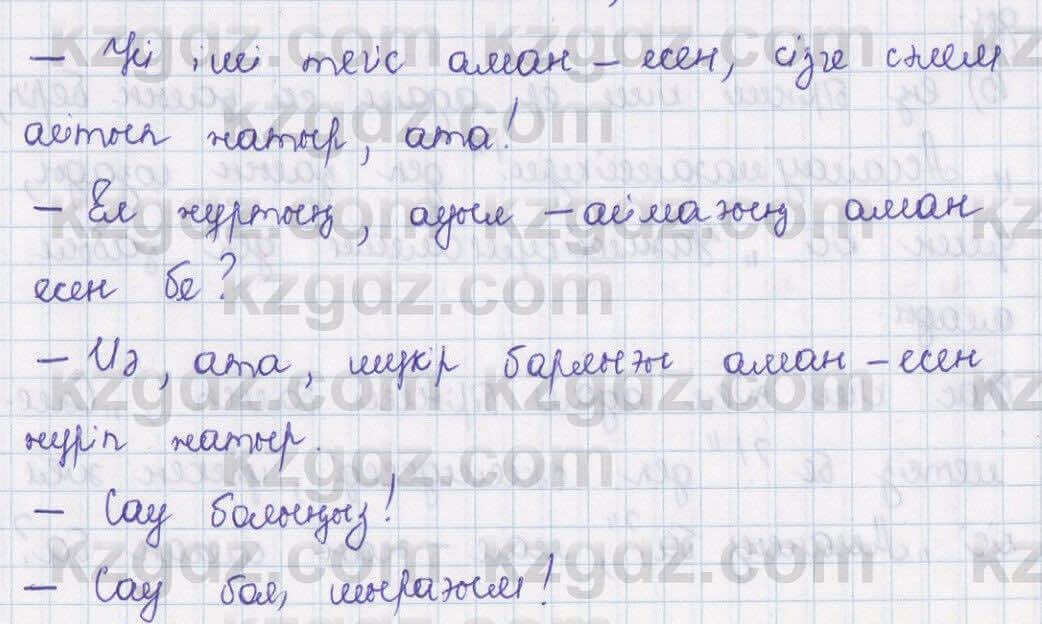 — Үй іші тегіс аман – есен, сізге сәлем
айтып жатыр, ата!
— Ел жұртың, ауыл – аймағың аман
есен бе?
— Иә, ата, шүкір барлығы аман – есен
жүріп жатыр.
— Сау болыңыз!
— Сау бол, шырағым!